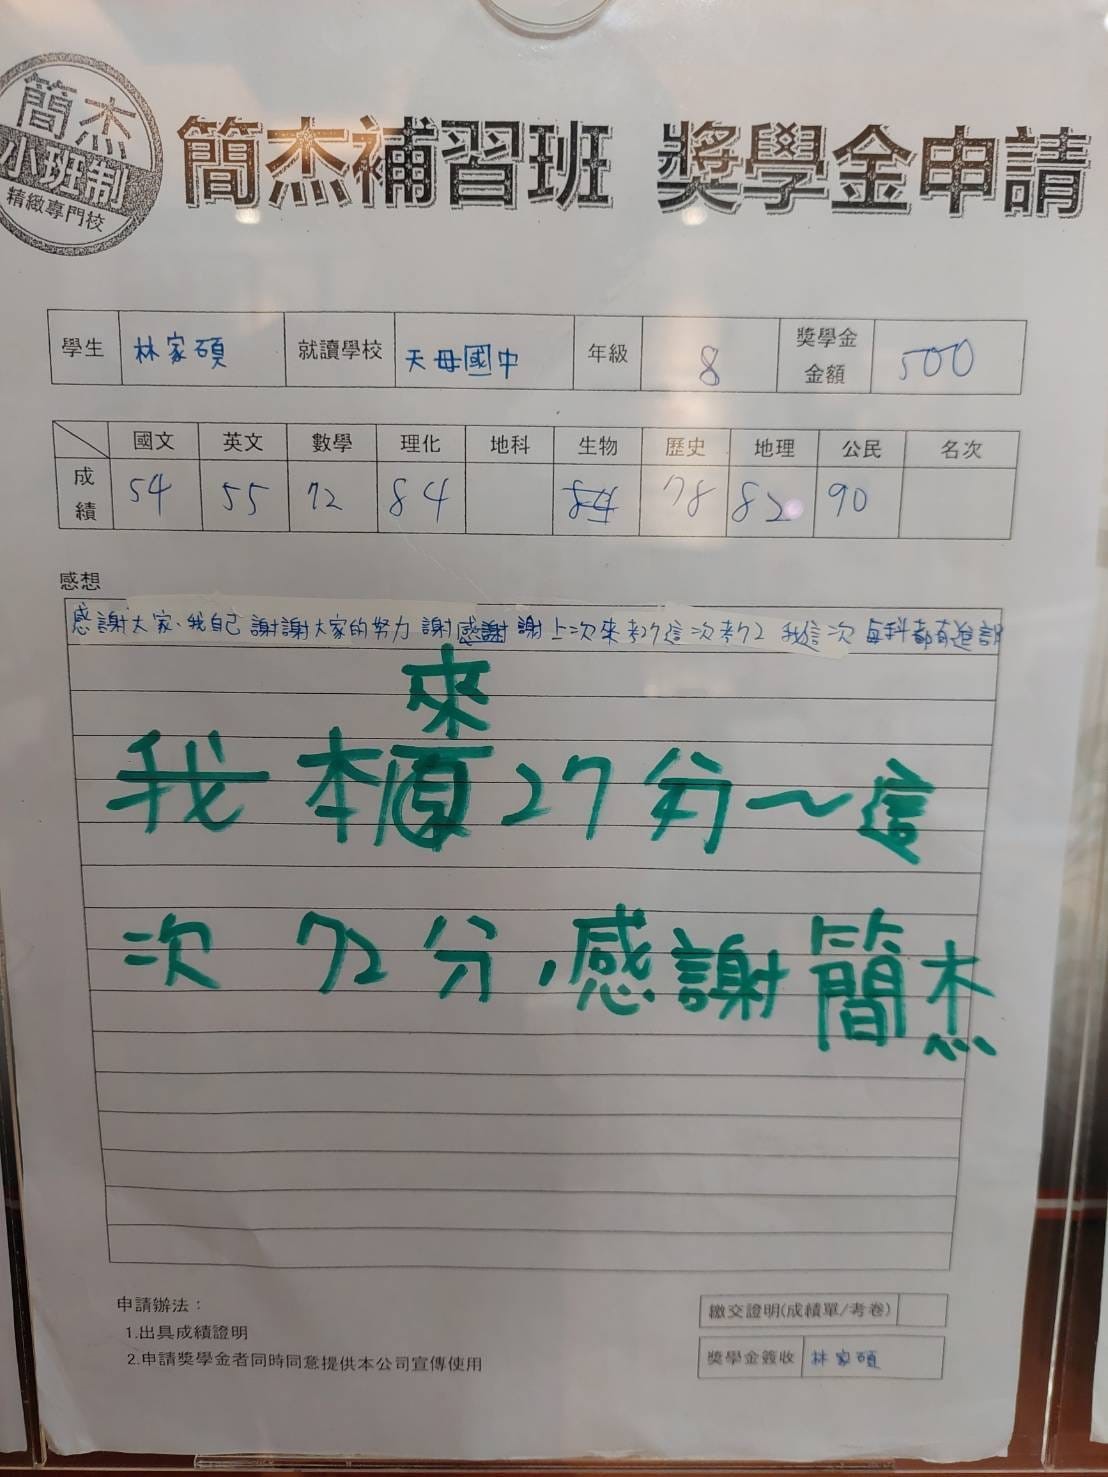 簡杰
小班制
精緻專門校
簡杰補習班 獎學金申請
學生 林家碩 就讀學校 天母國中 年級 8 獎學金金額 500
國文 英文 數學 理化 地科 生物 歷史 地理 公民 名次
成績 54 55 72 84 78 82 90
感想
感謝大家、我自己 謝謝大家的努力 謝感謝謝 上次來考27這次考72 我這次 每科都有進
來
我本原27分~這
次 72分,感謝簡杰
申請辦法:
1.出具成績證明
2.申請獎學金者同時同意提供本公司宣傳使用
繳交證明(成績單/考卷)
獎學金簽收 林家碩